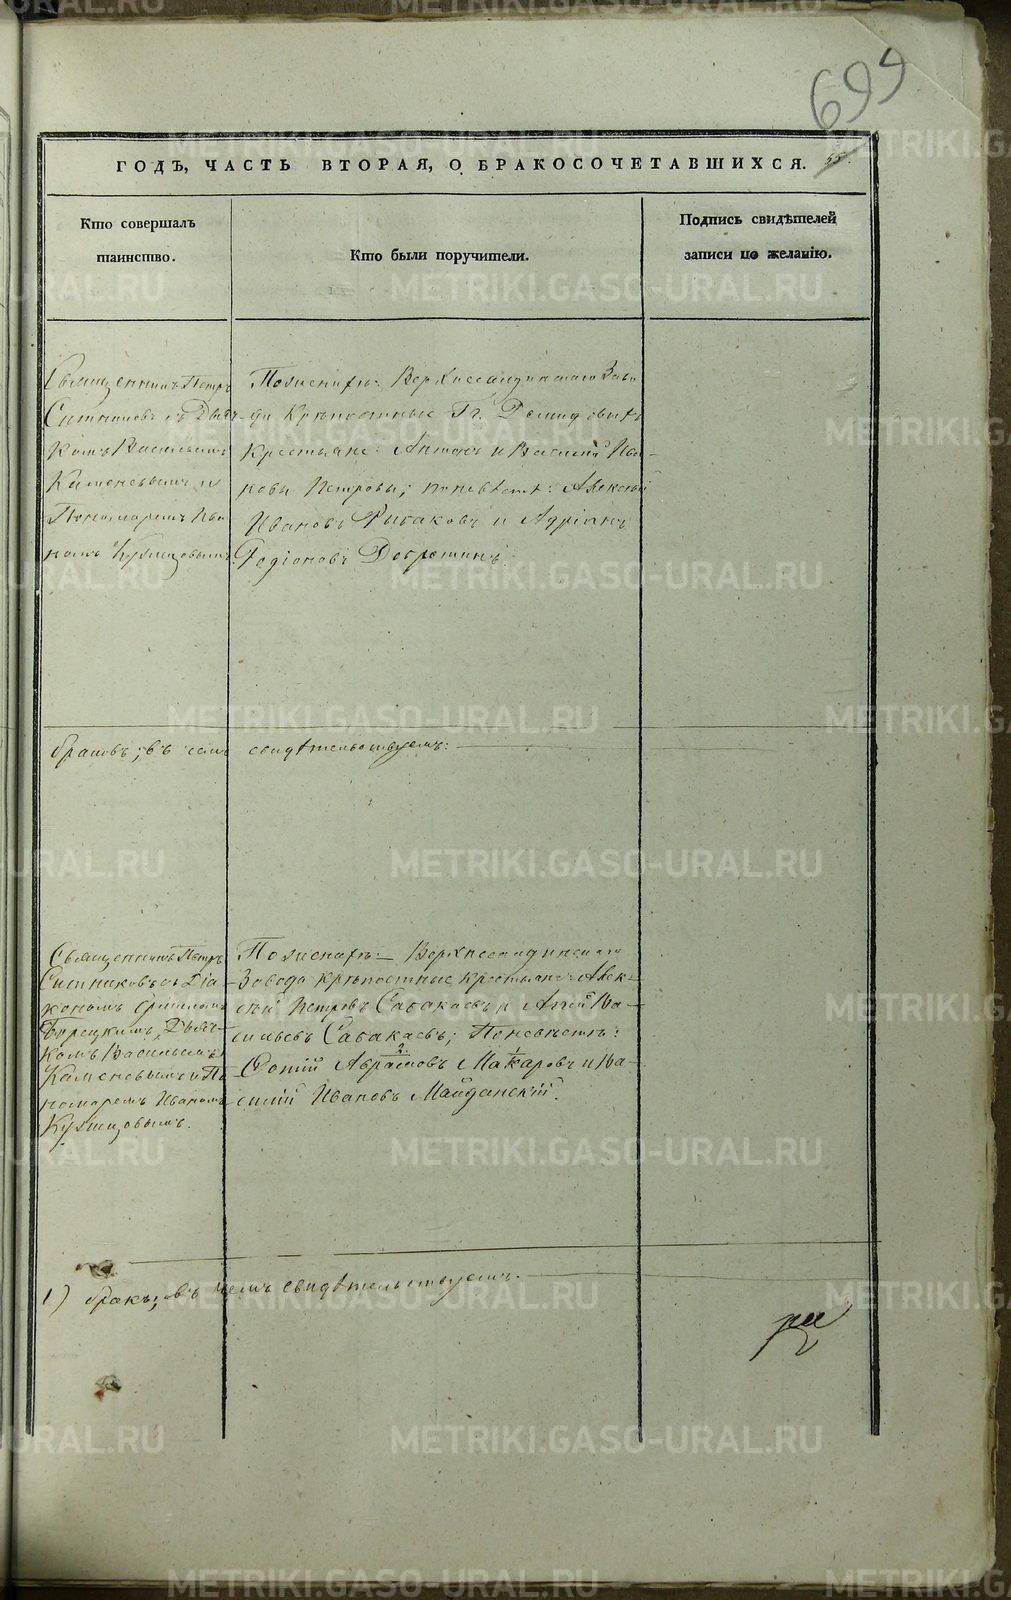 699
ГОДЪ, ЧАСТЬ ВТОРАЯ, О БРАКОСОЧЕТАВШИХСЯ.
Кто совершалъ
таинство.
Кто были поручители.
Подпись свидѣтелей
записи по желанію.
Священникъ Петръ
Ситниковъ съ Дьяч-
комъ Васильемъ
Каменевымъ и
Пономаремъ Ива
номъ Кузнецовымъ.
По женихѣ: Верхнесалдинскаго Заво
да Крѣпостные Гг. Демидовыхъ
Крестьяне: и Василій Ива-
новы Петровы; по невѣстѣ: Алексѣй
Ивановъ Рыбаковъ и Адріанъ
Родіоновъ
браковъ; въ чемъ свидѣтельствуемъ:
Священникъ Петръ
Ситниковъ съ Діа
кономъ
Дьяч-
комъ Васильемъ
Каменевымъ и По
номаремъ Иваномъ
Кузнецовымъ.
По женихѣ: Верхнесалдинскаго
Завода крѣпостные крестьяне: Алек-
сѣй Петровъ Сабакаевъ и Ва-
сильевъ Сабакаевъ; По невѣстѣ:
Фотій Аврамовъ Макаровъ и Ва-
силій Ивановъ Майданскій.
1) бракъ; въ чемъ свидѣтельствуемъ.
METRIKI.GASO-URAL.RU